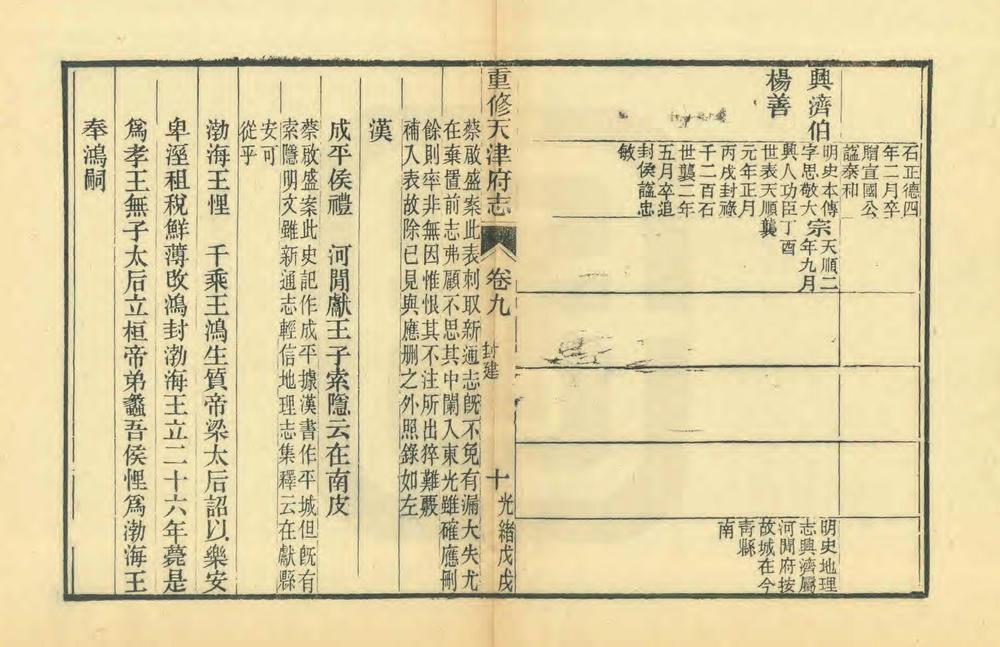 石正德四
年二月卒
贈宣國公
諡泰和
興濟伯
楊善
明史本傳
字思敬大
興人功臣
世表天順
元年正月
丙戌封祿
千二百石
世襲二年
五月卒追
封侯諡忠
敏
宗 天順二
年九月
丁酉
襲
明史地理
志興濟屬
河間府按
故城在今
青縣
南
重修天津府志 卷九 封建 十 光緒戊戌
蔡啟盛案此表刺取新通志旣不免有漏大失尤
在棄置前志弗顧不思其中闌入東光雖確應刪
餘則率非無因惟恨其不注所出猝難覈
補入表故除已見與應删之外照錄如左
漢
成平侯禮 河閒獻王子索隱云在南皮
蔡啟盛案此史記作成平據漢書作平城但旣有
索隱明文雖新通志輕信地理志集釋云在獻縣
安可
從乎
渤海王悝 千乘王鴻生質帝梁太后詔以樂安
卑溼租稅鮮薄改鴻封渤海王立二十六年薨是
爲孝王無子太后立桓帝弟蠡吾侯悝爲渤海王
奉鴻嗣